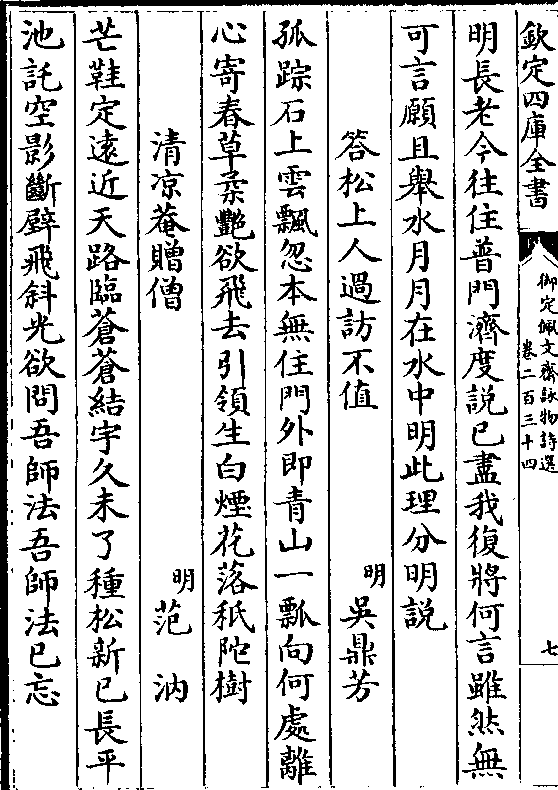 欽定四庫全書
御定佩文齋詠物詩選
卷二百三十四
七
明長老今往住普門濟度說已盡我復將何言雖然無
可言願且舉水月月在水中明此理分明説
答松上人過訪不值
明
吳鼎芳
孤踪石上雲飄忽本無住門外即青山一瓢向何處離
心寄春草柔艷欲飛去引領生白煙花落秪陀樹
清凉菴贈僧
明
范汭
芒鞋定遠近天路臨蒼蒼結宇久未了種松新已長平
池託空影斷壁飛斜光欲問吾師法吾師法已忘